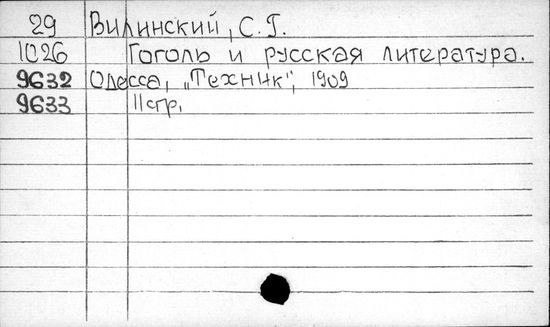 29 Вилинский, С. Г.
1026 Гоголь и русская литература.
9632 Одесса, „Техник", 1909
9633 11стр.